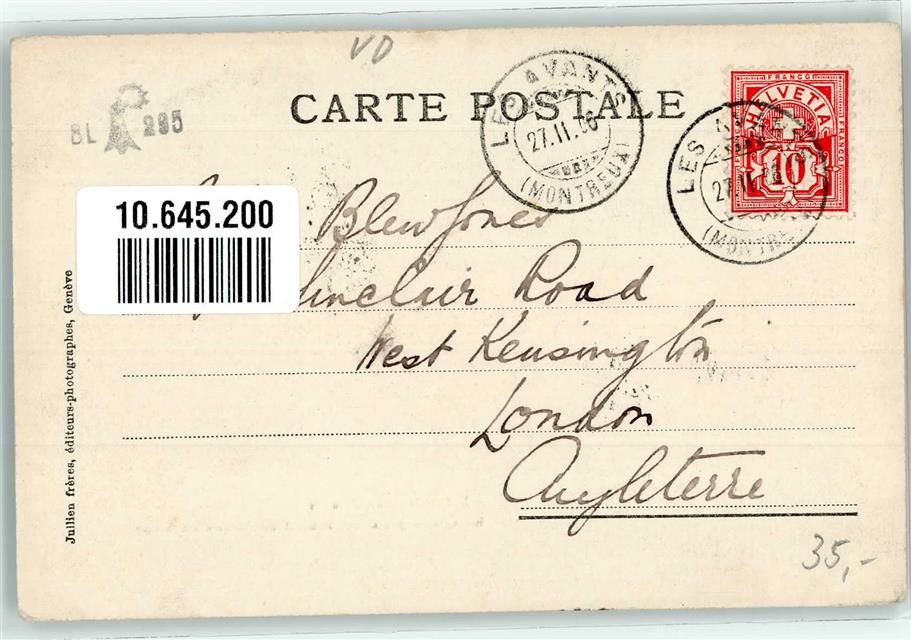 VD
CARTE POSTALE
BL 295
LES AVANTS
27.II.
(MONTREUX)
FRANCO
HELVETIA
FRANCO
10
LES
27.II.
(MONTRE
10.645.200
Blew Jones
Sinclair Road
West Kensington
London
Angleterre
Jullien frères, éditeurs-photographes, Genève
35,-